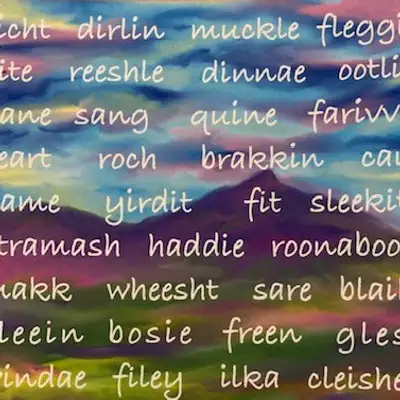 icht dirlin muckle fleggi
ite reeshle dinnae ootli
ane sang quine farivv
eart roch brakkin cau
ame yirdit fit sleekit
tramash haddie roonaboo
makk wheesht sare blai
leein bosie freen gles
indae filey ilka cleishe